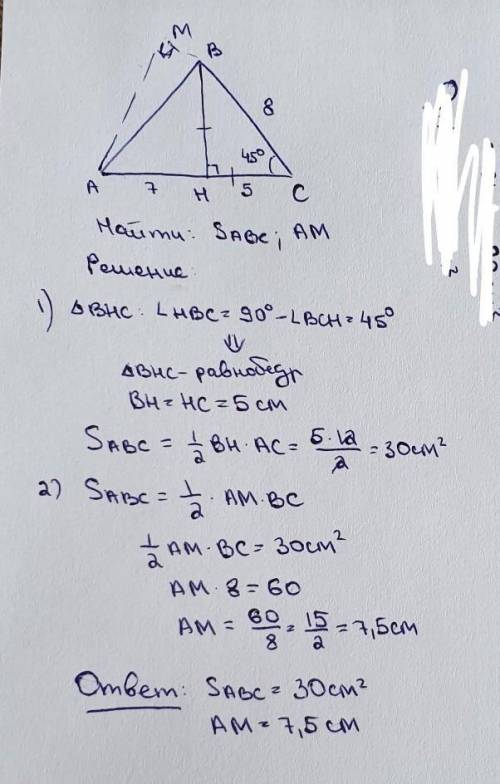 M
B
8
45°
A 7 H 5 C
Найти: SABC; AM
Решение:
1) ΔBHC: ∠HBC = 90° - ∠BCH = 45°
⇓
ΔBHC - равнобедр
BH = HC = 5 см
SABC = 1/2 BH · AC = 5·12/2 = 30см²
2) SABC = 1/2 · AM · BC
1/2 AM · BC = 30см²
AM · 8 = 60
AM = 60/8 = 15/2 = 7,5см
Ответ: SABC = 30см²
AM = 7,5 см